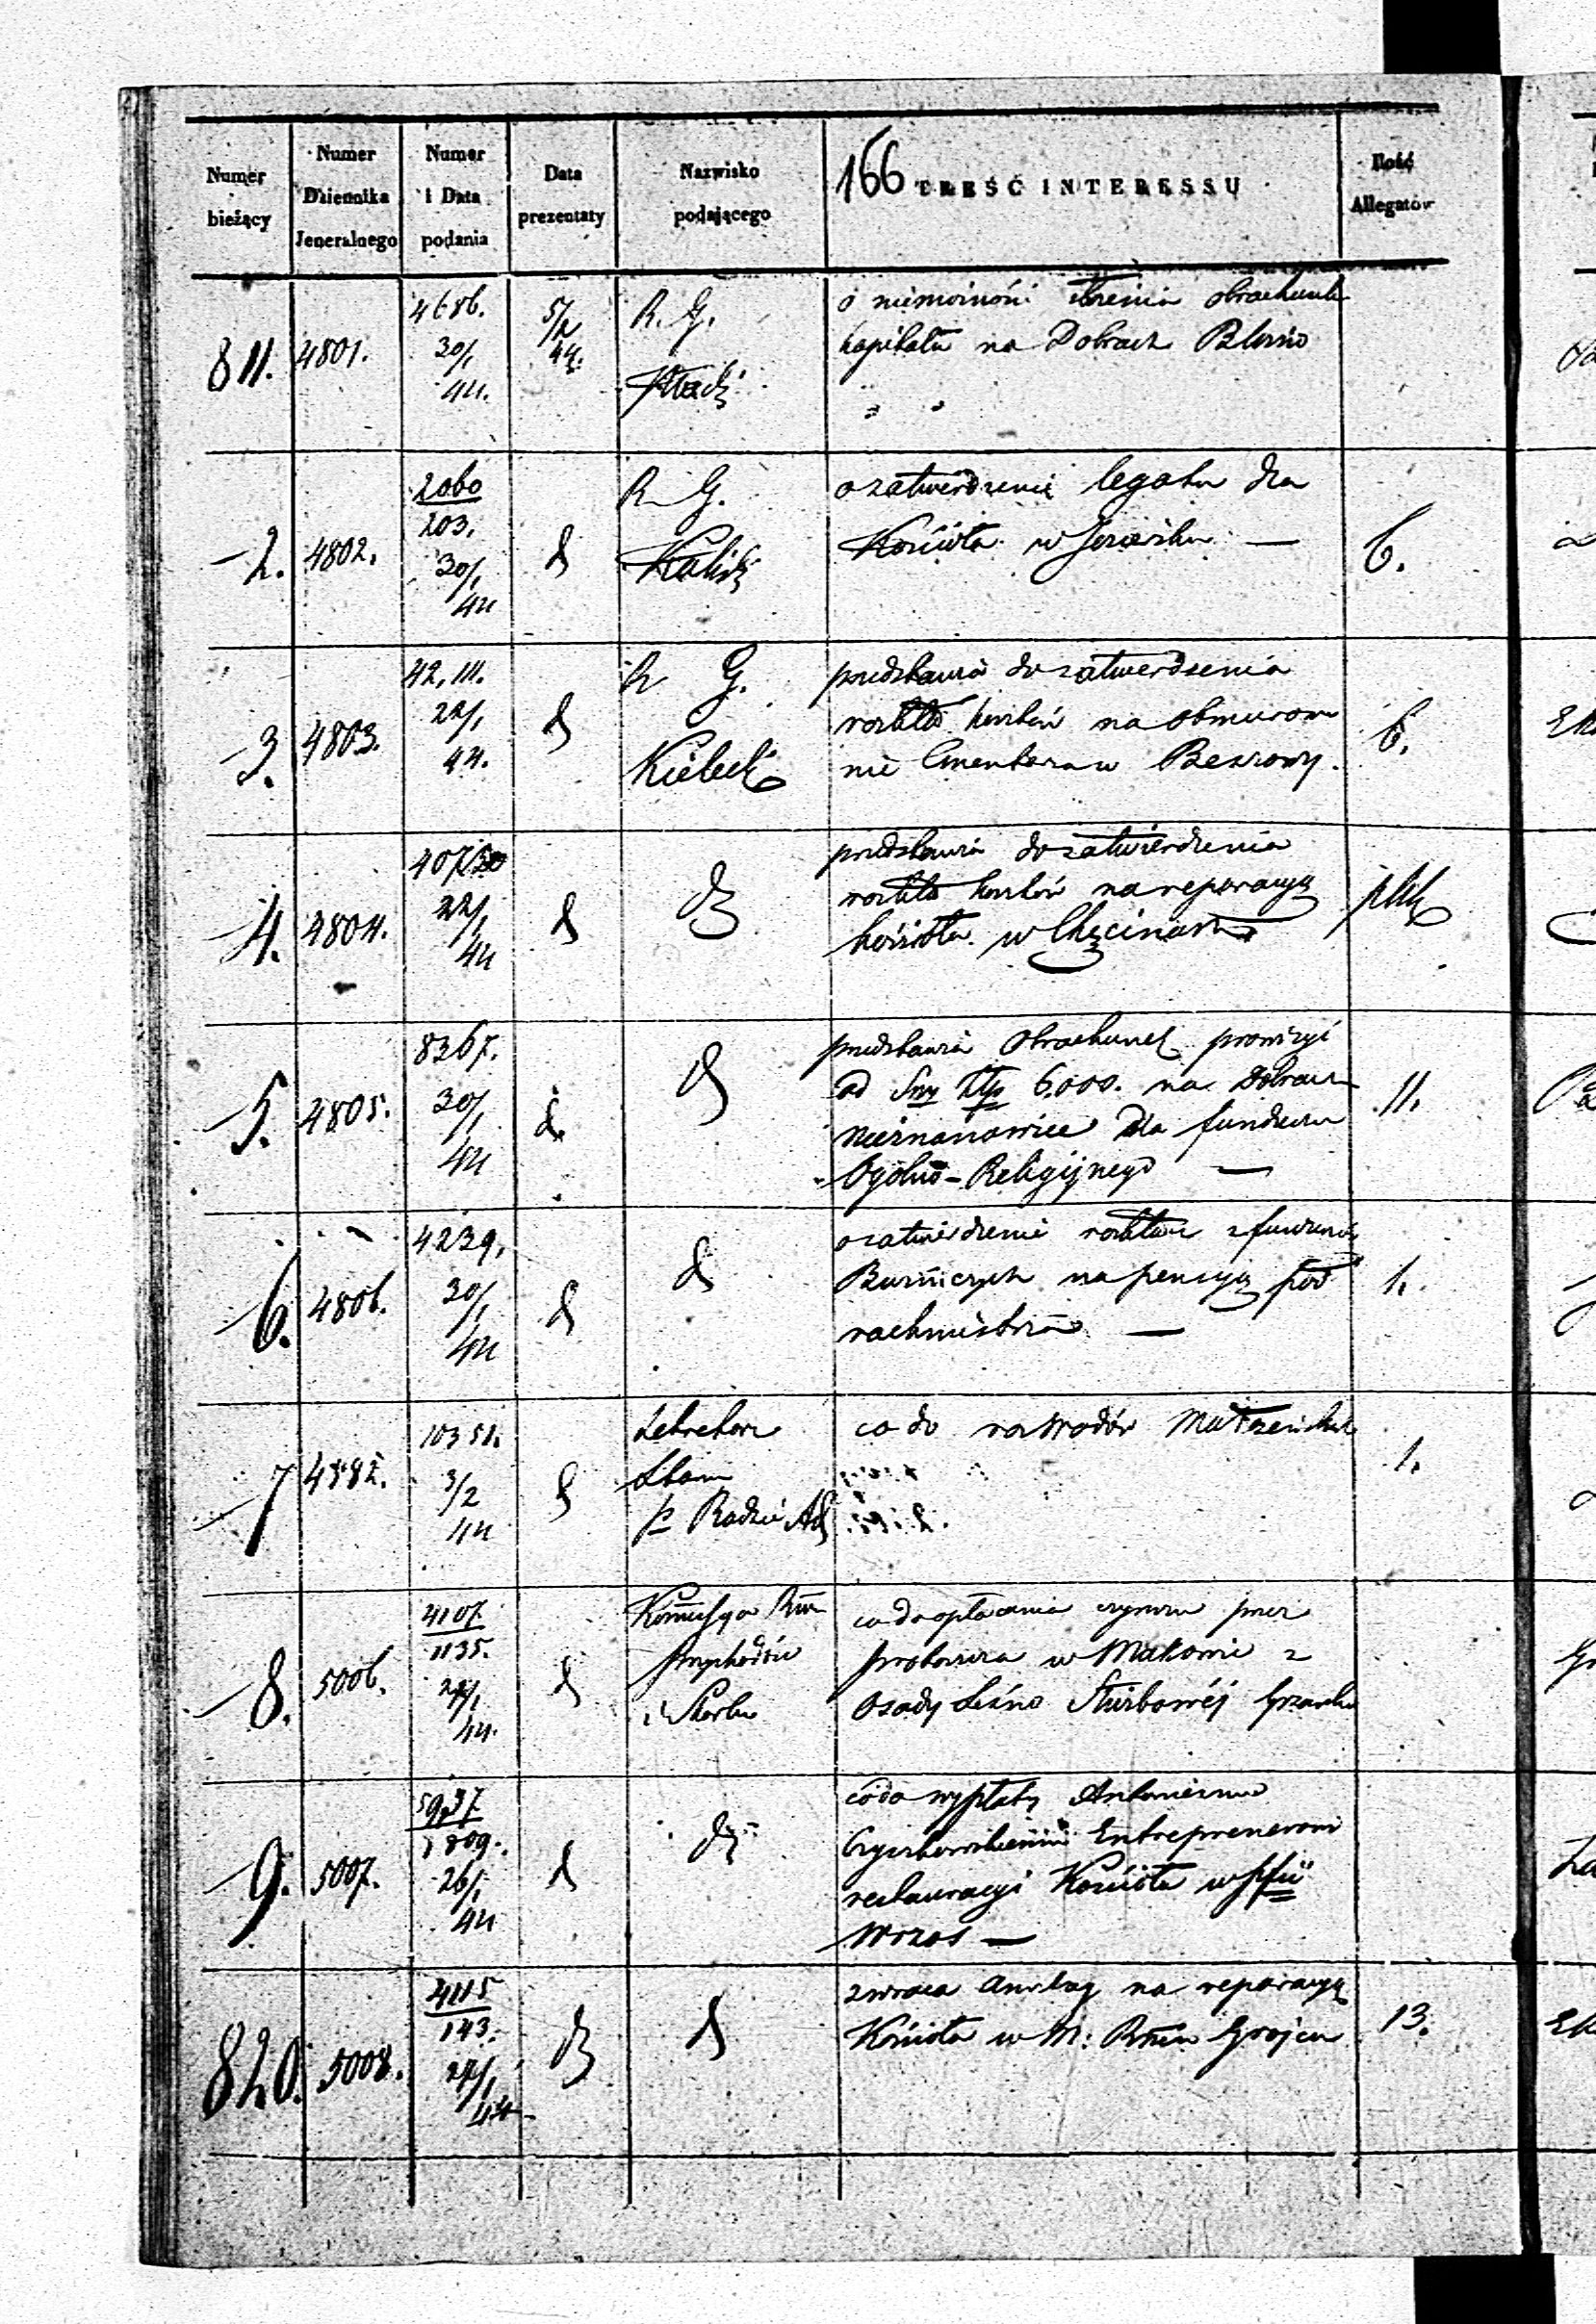 Numer bieżący
Numer Dziennika Jeneralnego
Numer i Data podania
Data prezentaty
Nazwisko podającego
166 TREŚĆ INTERESSU
Ilość Allegatów
811. 4801. 4686. 30/1 44. 5/2 44. R. G.
o niemożności obrachunku
kapitału na Dobrach
2. 4802. 2060
203. 30/1 44 d R. G. Kalisk
o zatwierdzenie legatu dla
Kościoła w 6.
3. 4803. 42,111. 22/1 44. d R G. Kieleck
przedstawia do zatwierdzenia
rozkład kosztów na obmurowa
nie Cmentarza w 6.
4. 4804. 22/1 44 d d
przedstawia do zatwierdzenia
rozkład kosztów na reparacyą
kościoła w Chęcinach plik
5. 4805. 8267. 30/1 44 d. d
przedstawia Obrachunek prowizyi
od Smy Złp 6,000. na Dobrach
Nieznanowice dla funduszu
Ogólno-Religijnego — 11.
6. 4806. 4239. 30/1 44 d d
o zatwierdzenie rozkładu z funduszów
na pensyą pod
rachmistrza — 1.
7 4882. 10351. 3/2 44 d Sekretarz
Stanu
p Radzie Ad
co do rozwodów Małżeńskich 1.
8. 5006. 4107
1135. 24/1 44. d Kommissya Rzą
Przychodów
i Skarbu
co do opłacania czynszu przez
proboszcza w Makowie z
Osady Leśno Skarbowéj
9. 5007. 5937
1809. 26/1 44 d d
co do wypłaty Antoniemu
Entreprenerowi
restauracyi Kościoła w
Wrzos —
820. 5008. 4115
143. 24/1 44 d d
zwraca Anszlag na reparacyą
Kościoła w M. Grojcu 13.